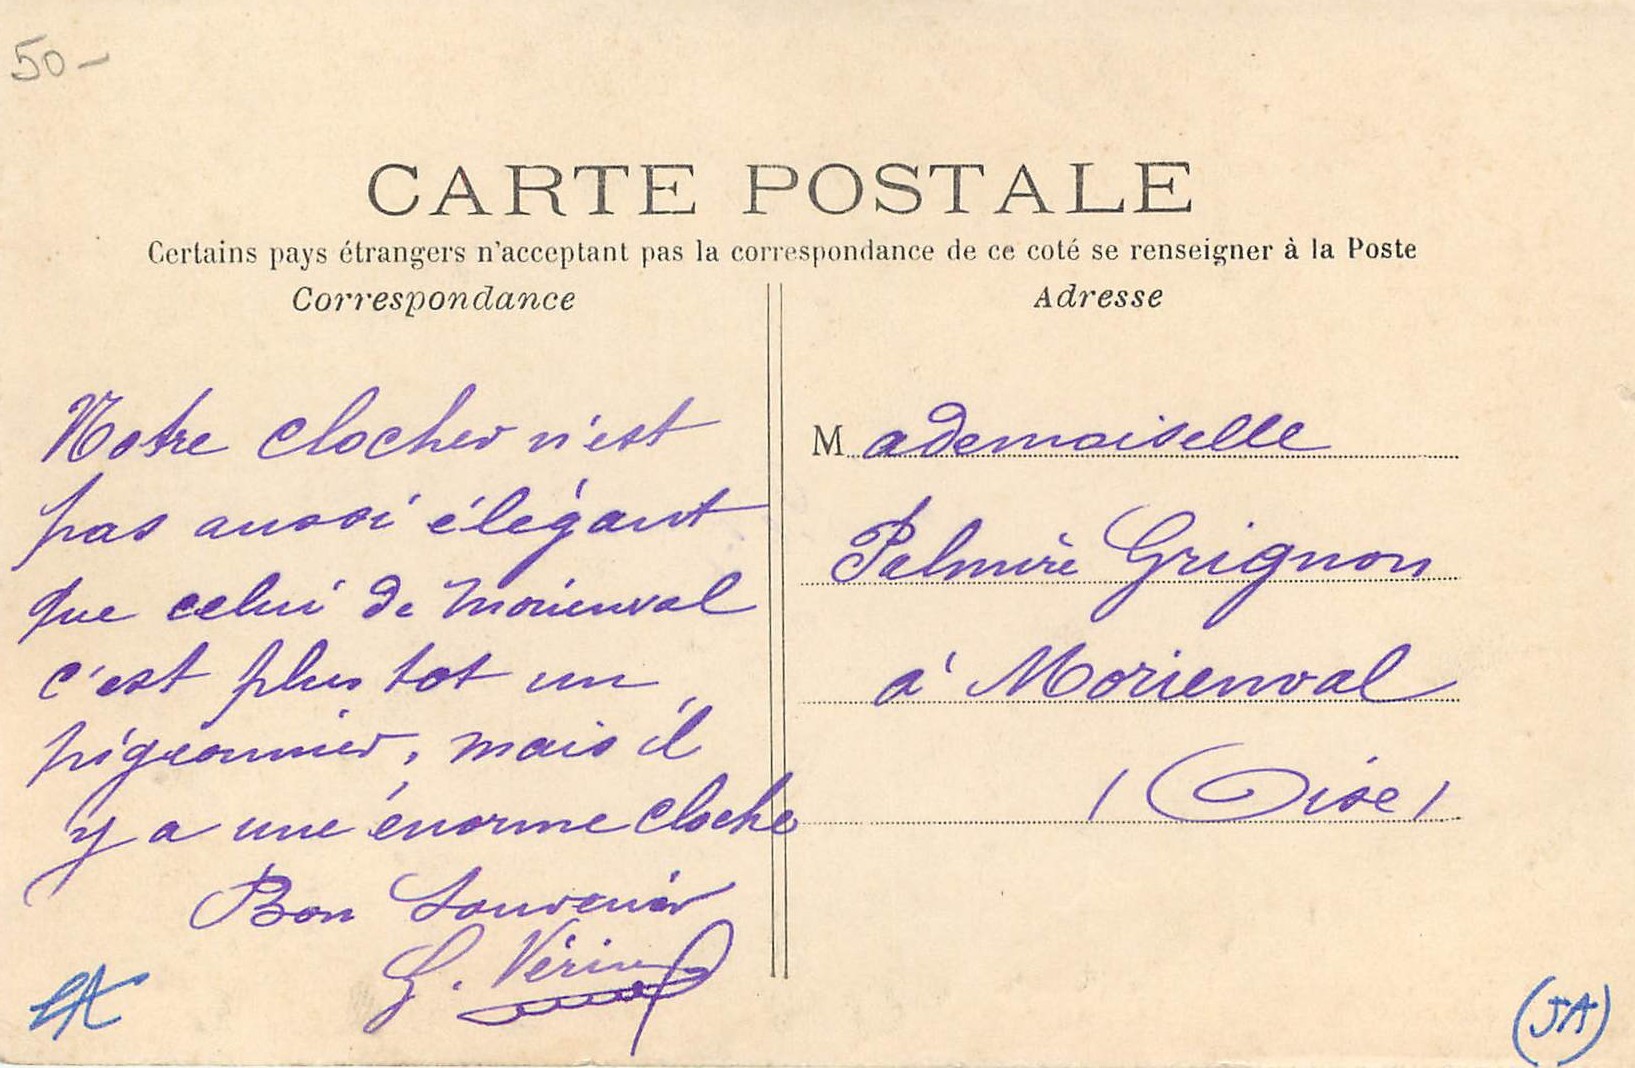 50-
CARTE POSTALE
Certains pays étrangers n'acceptant pas la correspondance de ce coté se renseigner à la Poste
Correspondance
Notre clocher n'est
pas aussi élégant
que celui de Morienval
c'est plus tot un
pigeonnier, mais il
y a une énorme cloche
Bon Souvenir
G. Vérin
Adresse
Mademoiselle
Palmire Grignon
à Morienval
(Oise)
(JA)